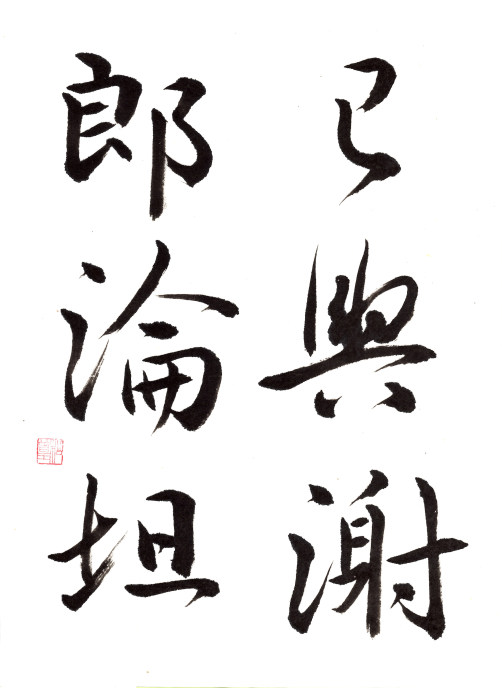 已與謝
郎論坦